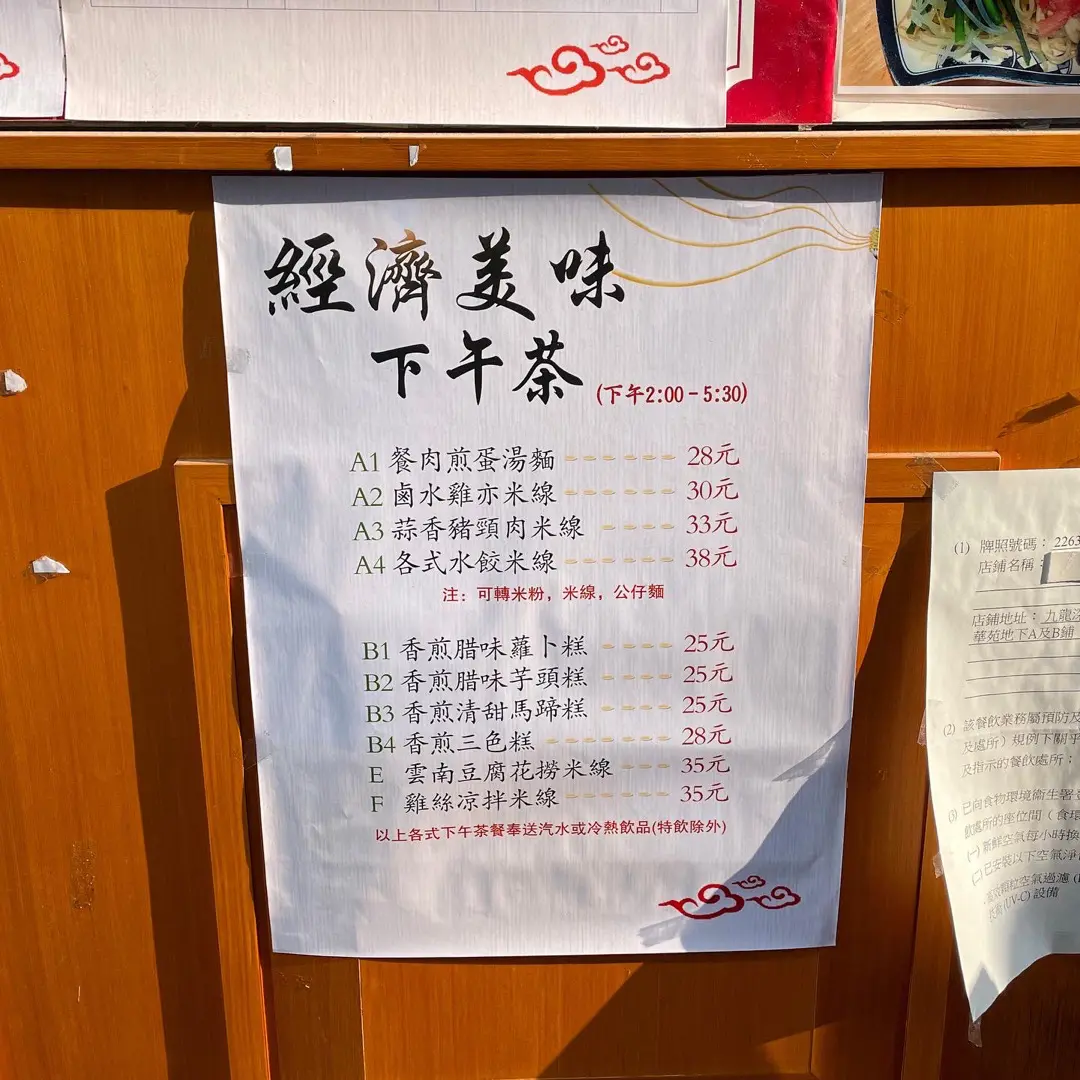 經濟美味
下午茶 (下午2:00-5:30)
A1 餐肉煎蛋湯麵 28元
A2 鹵水雞亦米線 30元
A3 蒜香豬頸肉米線 33元
A4 各式水餃米線 38元
注: 可轉米粉, 米線, 公仔麵
B1 香煎腊味蘿卜糕 25元
B2 香煎腊味芋頭糕 25元
B3 香煎清甜馬蹄糕 25元
B4 香煎三色糕 28元
E 雲南豆腐花撈米線 35元
F 雞絲凉拌米線 35元
以上各式下午茶餐奉送汽水或冷熱飲品(特飲除外)
(1) 牌照號碼: 2263
店鋪名稱:
店鋪地址: 九龍深
華苑地下A及B鋪
(2) 該餐飲業務屬預防及
及處所) 規例下關乎
及指示的餐飲處所:
(3) 已向食物環境衞生署
飲處所的座位間 (食環
(一) 新鮮空氣每小時換
(二) 已安裝以下空氣淨
高效顆粒空氣過濾
技術 (UV-C) 設備